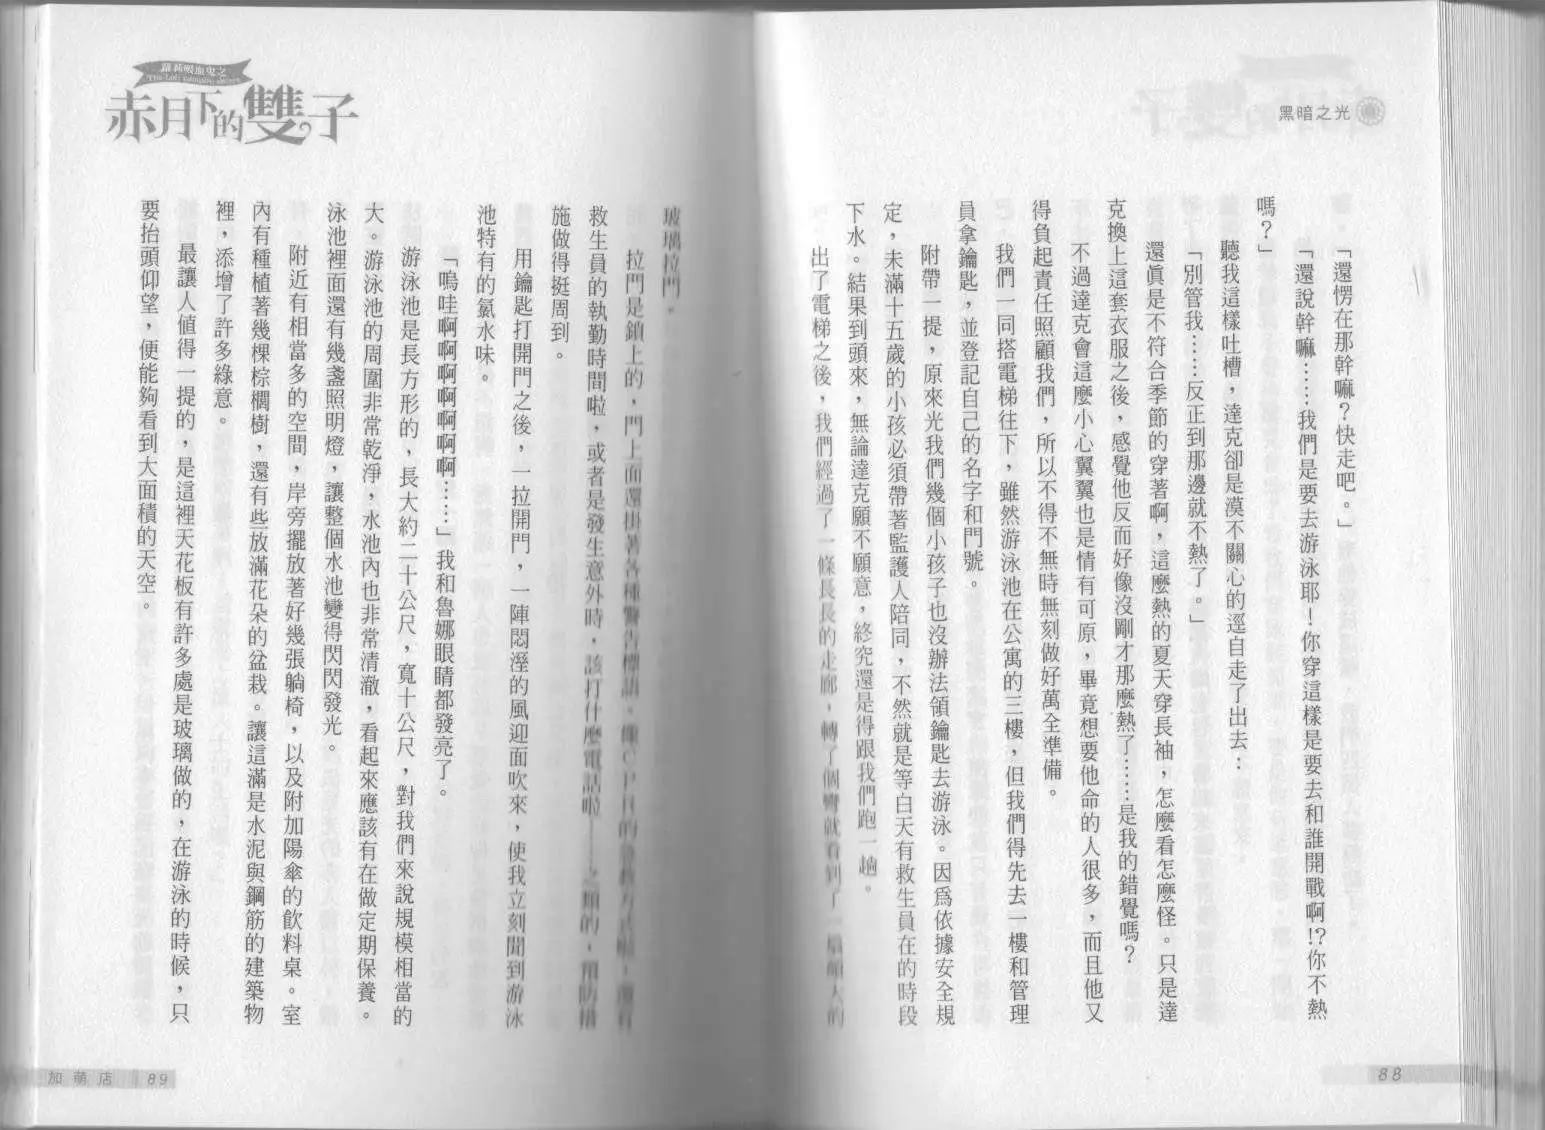 黑暗之光
「還愣在那幹嘛？快走吧。」
「還說幹嘛……我們是要去游泳耶！你穿這樣是要去和誰開戰啊!?你不熱
嗎？」
聽我這樣吐槽，達克卻是漠不關心的逕自走了出去：
「別管我……反正到那邊就不熱了。」
還真是不符合季節的穿著啊，這麼熱的夏天穿長袖，怎麼看怎麼怪。只是達
克換上這套衣服之後，感覺他反而好像沒剛才那麼熱了……是我的錯覺嗎？
不過達克會這麼小心翼翼也是情有可原，畢竟想要他命的人很多，而且他又
得負起責任照顧我們，所以不得不無時無刻做好萬全準備。
我們一同搭電梯往下，雖然游泳池在公寓的三樓，但我們得先去一樓和管理
員拿鑰匙，並登記自己的名字和門號。
附帶一提，原來光我們幾個小孩子也沒辦法領鑰匙去游泳。因為依據安全規
定，未滿十五歲的小孩必須帶著監護人陪同，不然就是等白天有救生員在的時段
下水。結果到頭來，無論達克願不願意，終究還是得跟我們跑一趟。
出了電梯之後，我們經過了一條長長的走廊，轉了個彎就看到了一扇頗大的
88
蘿莉吸血鬼之
赤月下的雙子
玻璃拉門。
拉門是鎖上的，門上面還掛著各種警告標語、像CPR的急救方式啦，還有
救生員的執勤時間啦，或者是發生意外時，該打什麼電話啦……之類的，預防措
施做得挺周到。
用鑰匙打開門之後，一拉開門，一陣悶溼的風迎面吹來，使我立刻聞到游泳
池特有的氯水味。
「嗚哇啊啊啊啊啊啊啊……」我和魯娜眼睛都發亮了。
游泳池是長方形的，長大約二十公尺，寬十公尺，對我們來說規模相當的
大。游泳池的周圍非常乾淨，水池內也非常清澈，看起來應該有在做定期保養。
泳池裡面還有幾盞照明燈，讓整個水池變得閃閃發光。
附近有相當多的空間，岸旁擺放著好幾張躺椅，以及附加陽傘的飲料桌。室
內有種植著幾棵棕櫚樹，還有些放滿花朵的盆栽。讓這滿是水泥與鋼筋的建築物
裡，添增了許多綠意。
最讓人值得一提的，是這裡天花板有許多處是玻璃做的，在游泳的時候，只
要抬頭仰望，便能夠看到大面積的天空。
加萌店 89